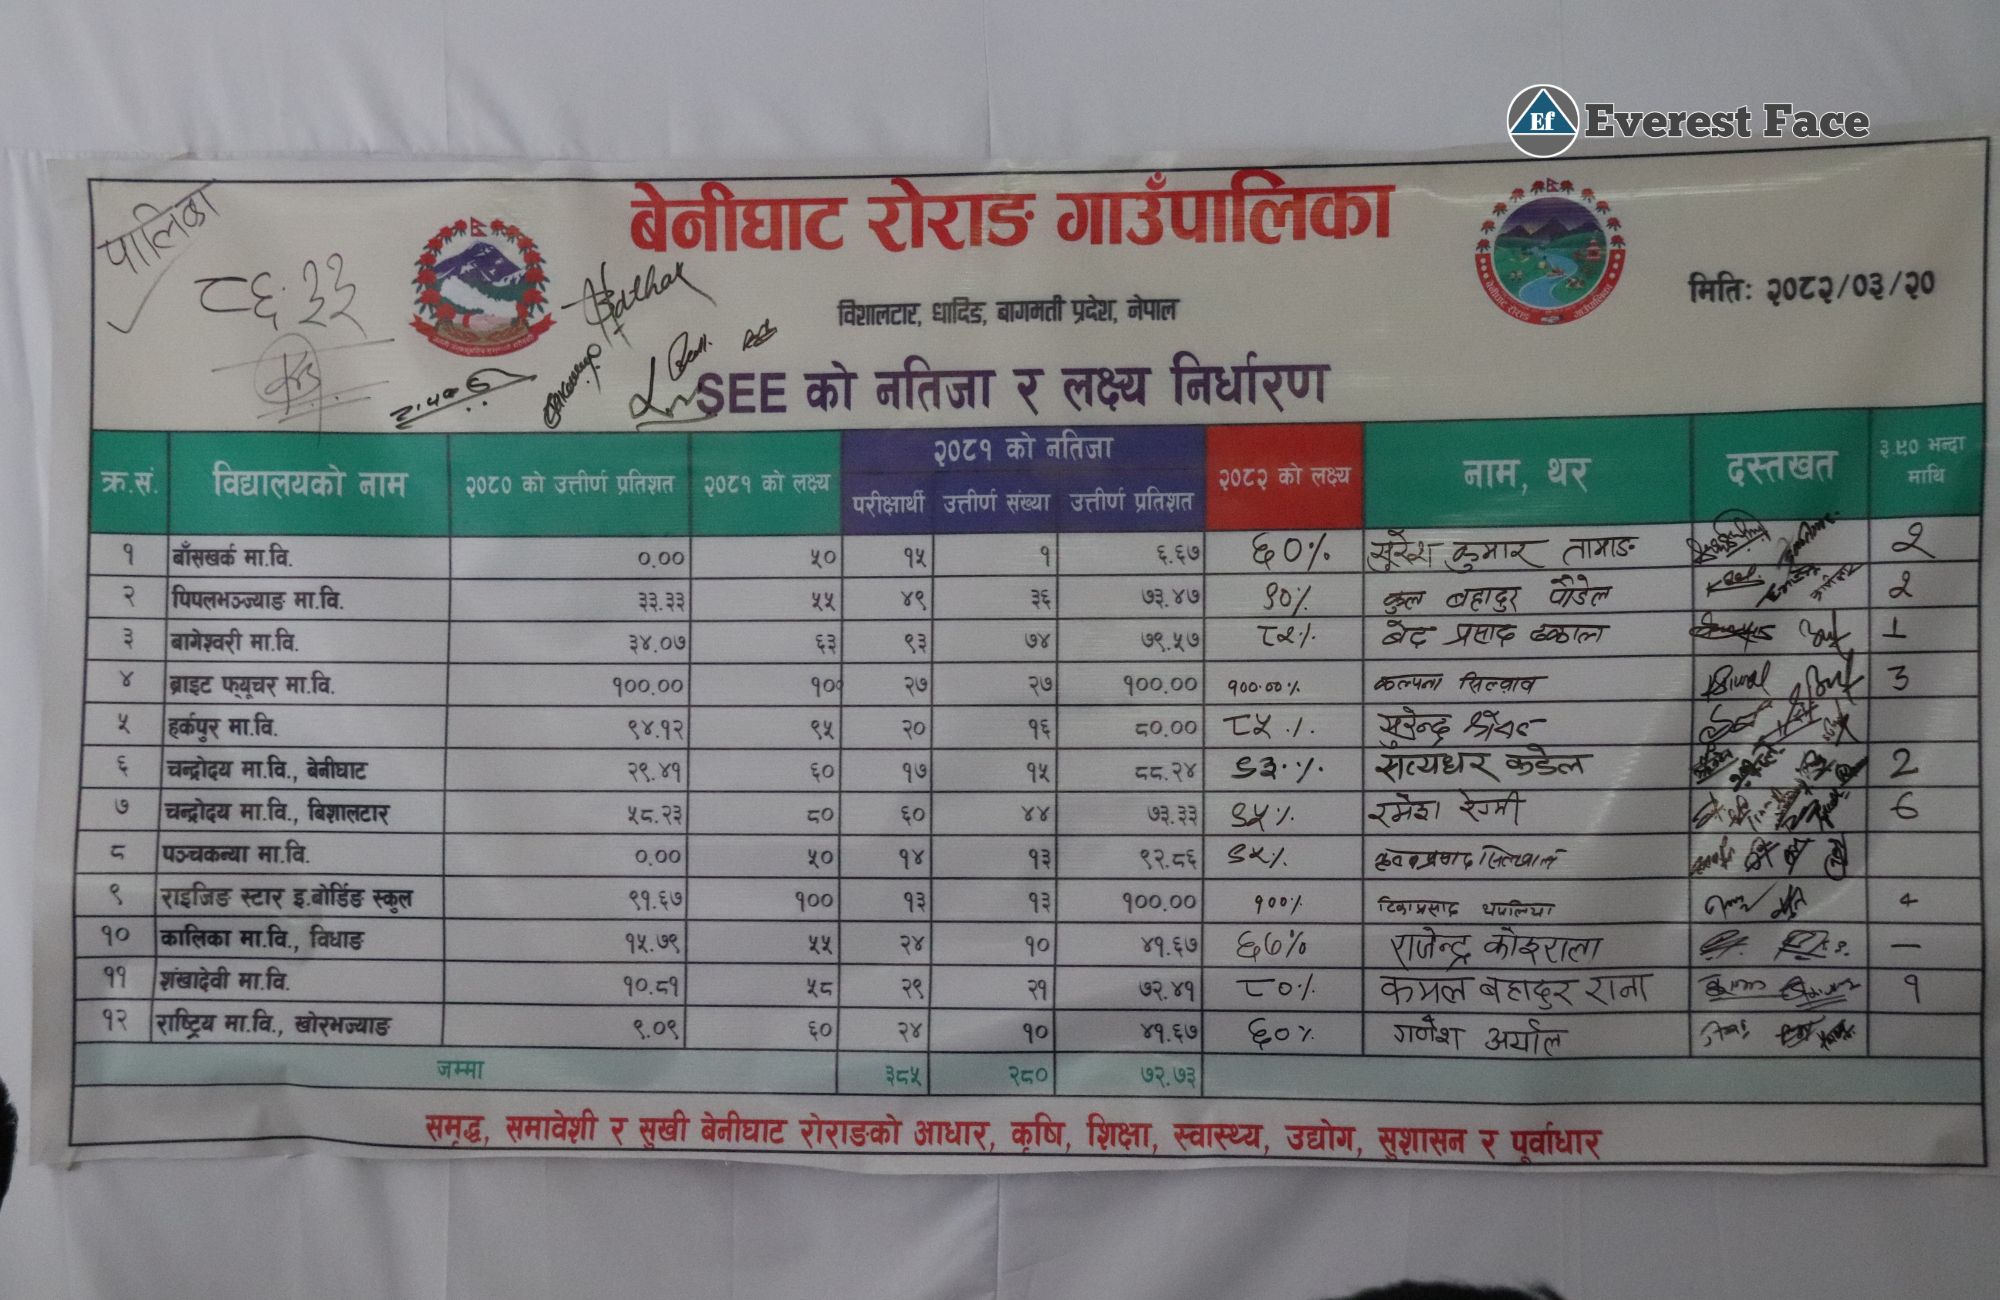 Ef Everest Face
बेनीघाट रोराङ गाउँपालिका
पालिका
८६.३३
मितिः २०८२/०३/२०
विशालटार, धादिङ, बागमती प्रदेश, नेपाल
SEE को नतिजा र लक्ष्य निर्धारण
क्र.सं. विद्यालयको नाम २०८० को उत्तीर्ण प्रतिशत २०८१ को लक्ष्य २०८१ को नतिजा २०८२ को लक्ष्य नाम, थर दस्तखत ३.९० भन्दा माथि
परीक्षार्थी उत्तीर्ण संख्या उत्तीर्ण प्रतिशत
१ बाँसखर्क मा.वि. ०.०० ५० १५ १ ६.६७ ६०% सुरेश कुमार तामाङ २
२ पिपलभञ्ज्याङ मा.वि. ३३.३३ ५५ ४९ ३६ ७३.४७ ९०% कुल बहादुर पौडेल 2
३ बागेश्वरी मा.वि. ३४.०७ ६३ ९३ ७४ ७९.५७ ८५% बेद प्रसाद ढकाल 1
४ ब्राइट फ्यूचर मा.वि. १००.०० १०० २७ २७ १००.०० १००.००% कल्पना सिल्वाल 3
५ हर्कपुर मा.वि. ९४.१२ ९५ २० १६ ८०.०० ८५.% सुरेन्द्र श्रेष्ठ
६ चन्द्रोदय मा.वि., बेनीघाट २९.४१ ६० १७ १५ ८८.२४ ९३.% सत्यधर कडेल 2
७ चन्द्रोदय मा.वि., बिशालटार ५८.२३ ८० ६० ४४ ७३.३३ ९५% रमेश रेग्मी 6
८ पञ्चकन्या मा.वि. ०.०० ५० १४ १३ ९२.८६ ९५%
९ राइजिङ स्टार इ.बोर्डिङ स्कुल ९१.६७ १०० १३ १३ १००.०० १००% टिकाप्रसाद थपलिया
१० कालिका मा.वि., विधाङ १५.७९ ५५ २४ १० ४१.६७ ६७% राजेन्द्र कोइराला —
११ शंखादेवी मा.वि. १०.८१ ५८ २९ २१ ७२.४१ ८०% कमल बहादुर राना १
१२ राष्ट्रिय मा.वि., खोरभञ्ज्याङ ९.०९ ६० २४ १० ४१.६७ ६०% गणेश अर्याल
जम्मा ३८५ २८० ७२.७३
समृद्ध, समावेशी र सुखी बेनीघाट रोराङको आधार, कृषि, शिक्षा, स्वास्थ्य, उद्योग, सुशासन र पूर्वाधार